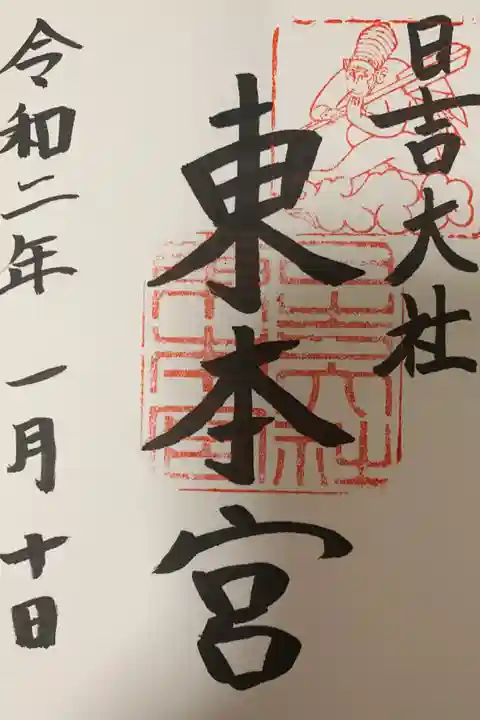 日吉大社
東本宮
令和二年 一月十日